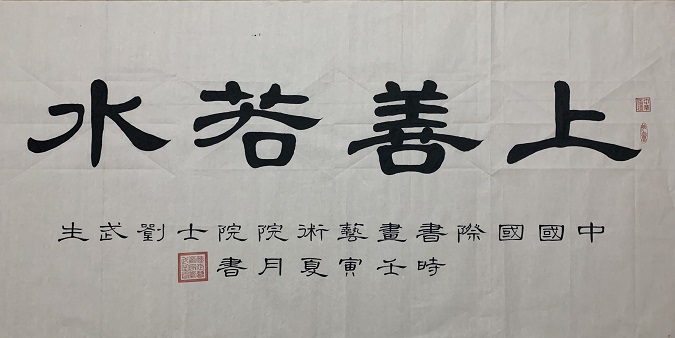 上善若水
中國國際書畫藝術院院士劉武生
時壬寅夏月書